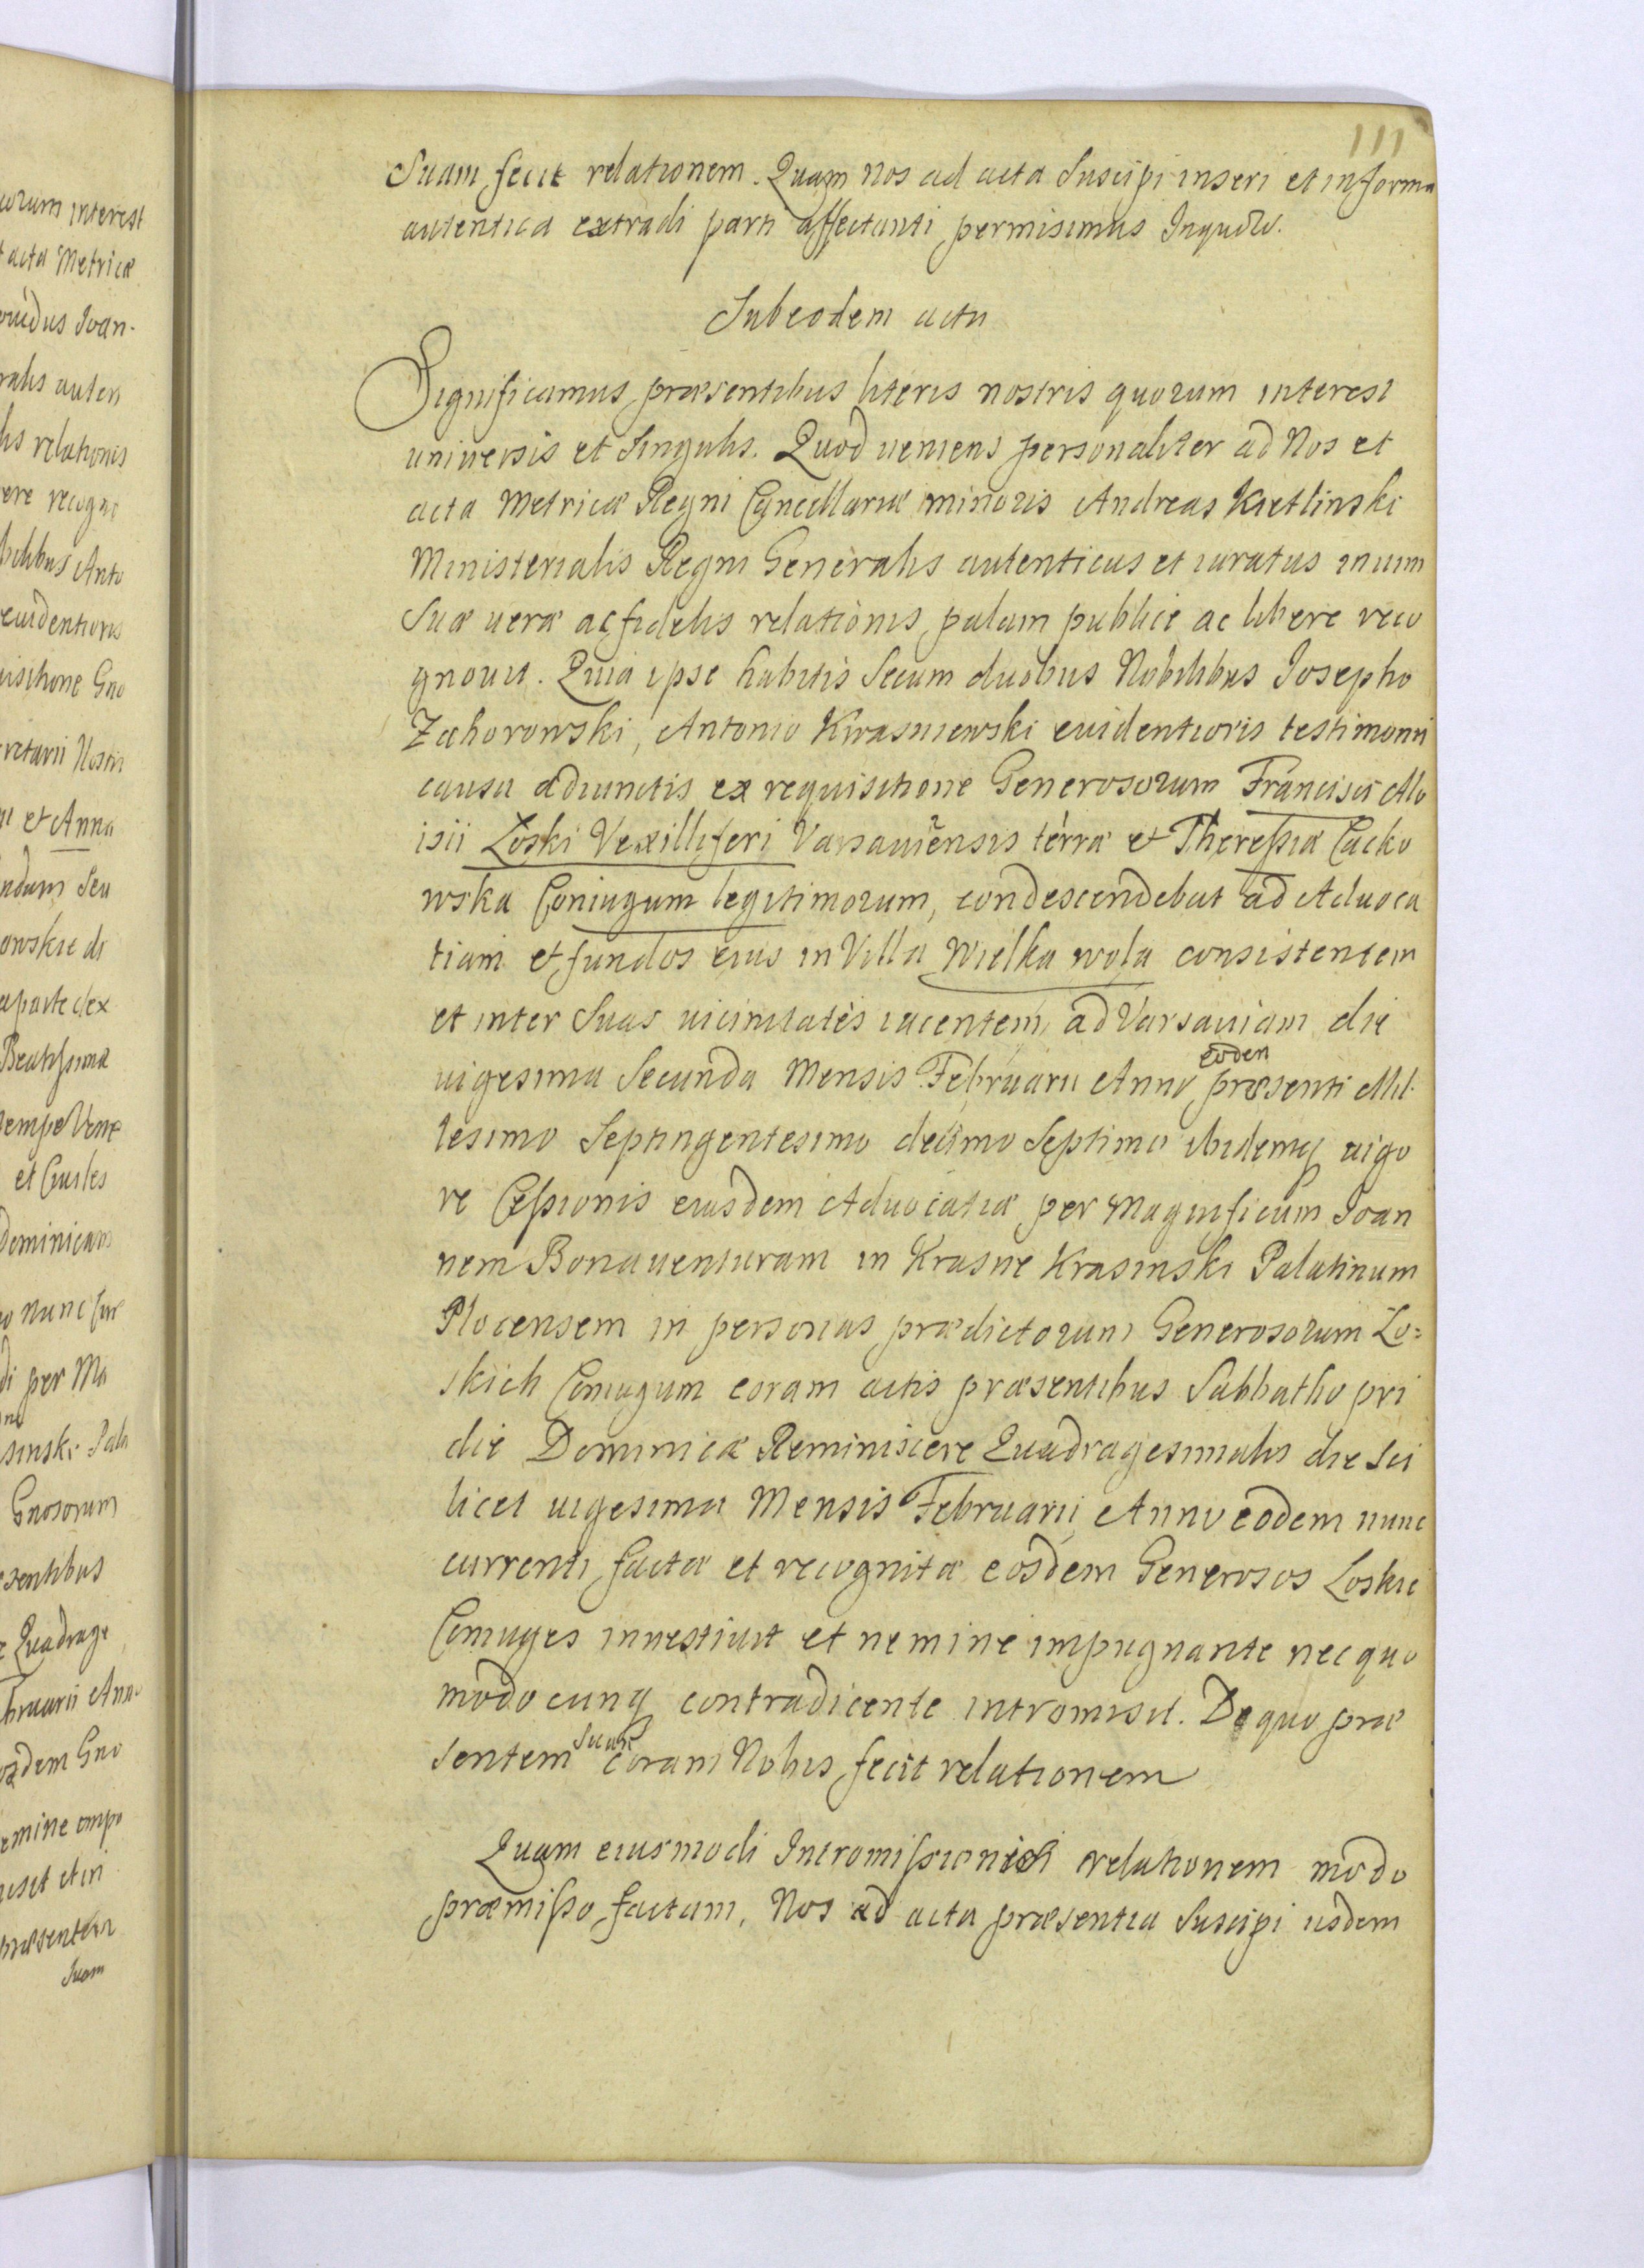 111
Suam fecit relationem. Quam Nos ad acta Suscipi inseri et in forma
autentica extradi parti affectanti permisimus
Sub eodem actu
Significamus præsentibus literis nostris quorum interest
universis et Singulis. Quod veniens personaliter ad Nos et
acta Metricæ Regni Cancellariæ minoris Andreas Kietlinski
Ministerialis Regni Generalis autenticus et iuratus in uim
Suæ veræ ac fidelis relationis palam publice ac libere reco
gnouit. Quia ipse habitis Secum duobus Nobilibus Josepho
Zahorowski, Antonio Kwasniewski euidentioris testimonii
causa adiunctis ex requisitione Generosorum Francisci Alo
isii Łoski Vexilliferi Varsauiensis terræ et Theressiæ Cacko
wska Coniugum legitimorum, condescendebat ad Aduoca
tiam et fundos eius in Villa Wielka wola consistentem
et inter Suas uicinitates iacentem, ad Varsauiam die
uigesima Secunda Mensis Februarii Anno præsenti Mil
eoden
lesimo Septingentesimo decimo Septimo ibidemq uigo
re Cessionis eiusdem Aduocatiæ per Magnificum Joan
nem Bonauenturam in Krasne Krasinski Palatinum
Plocensem in personas prædictorum Generosorum Ło=
skich Coniugum coram actis præsentibus Sabbatho pri
die Dominicæ Reminiscere Quadragesimalis die Sci
licet uigesima Mensis Februarii Anno eodem nunc
currenti factæ et recognitæ eosdem Generosos Łoskie
Coniuges inuestiuit et nemine impugnante nec quo
modocunq contradicente intromisit. De quo præ
sentem Suam coram Nobis fecit relationem
Quam eiusmodi Intromissionis relationem modo
præmisso factam, Nos ad acta præsentia Suscipi iisdem